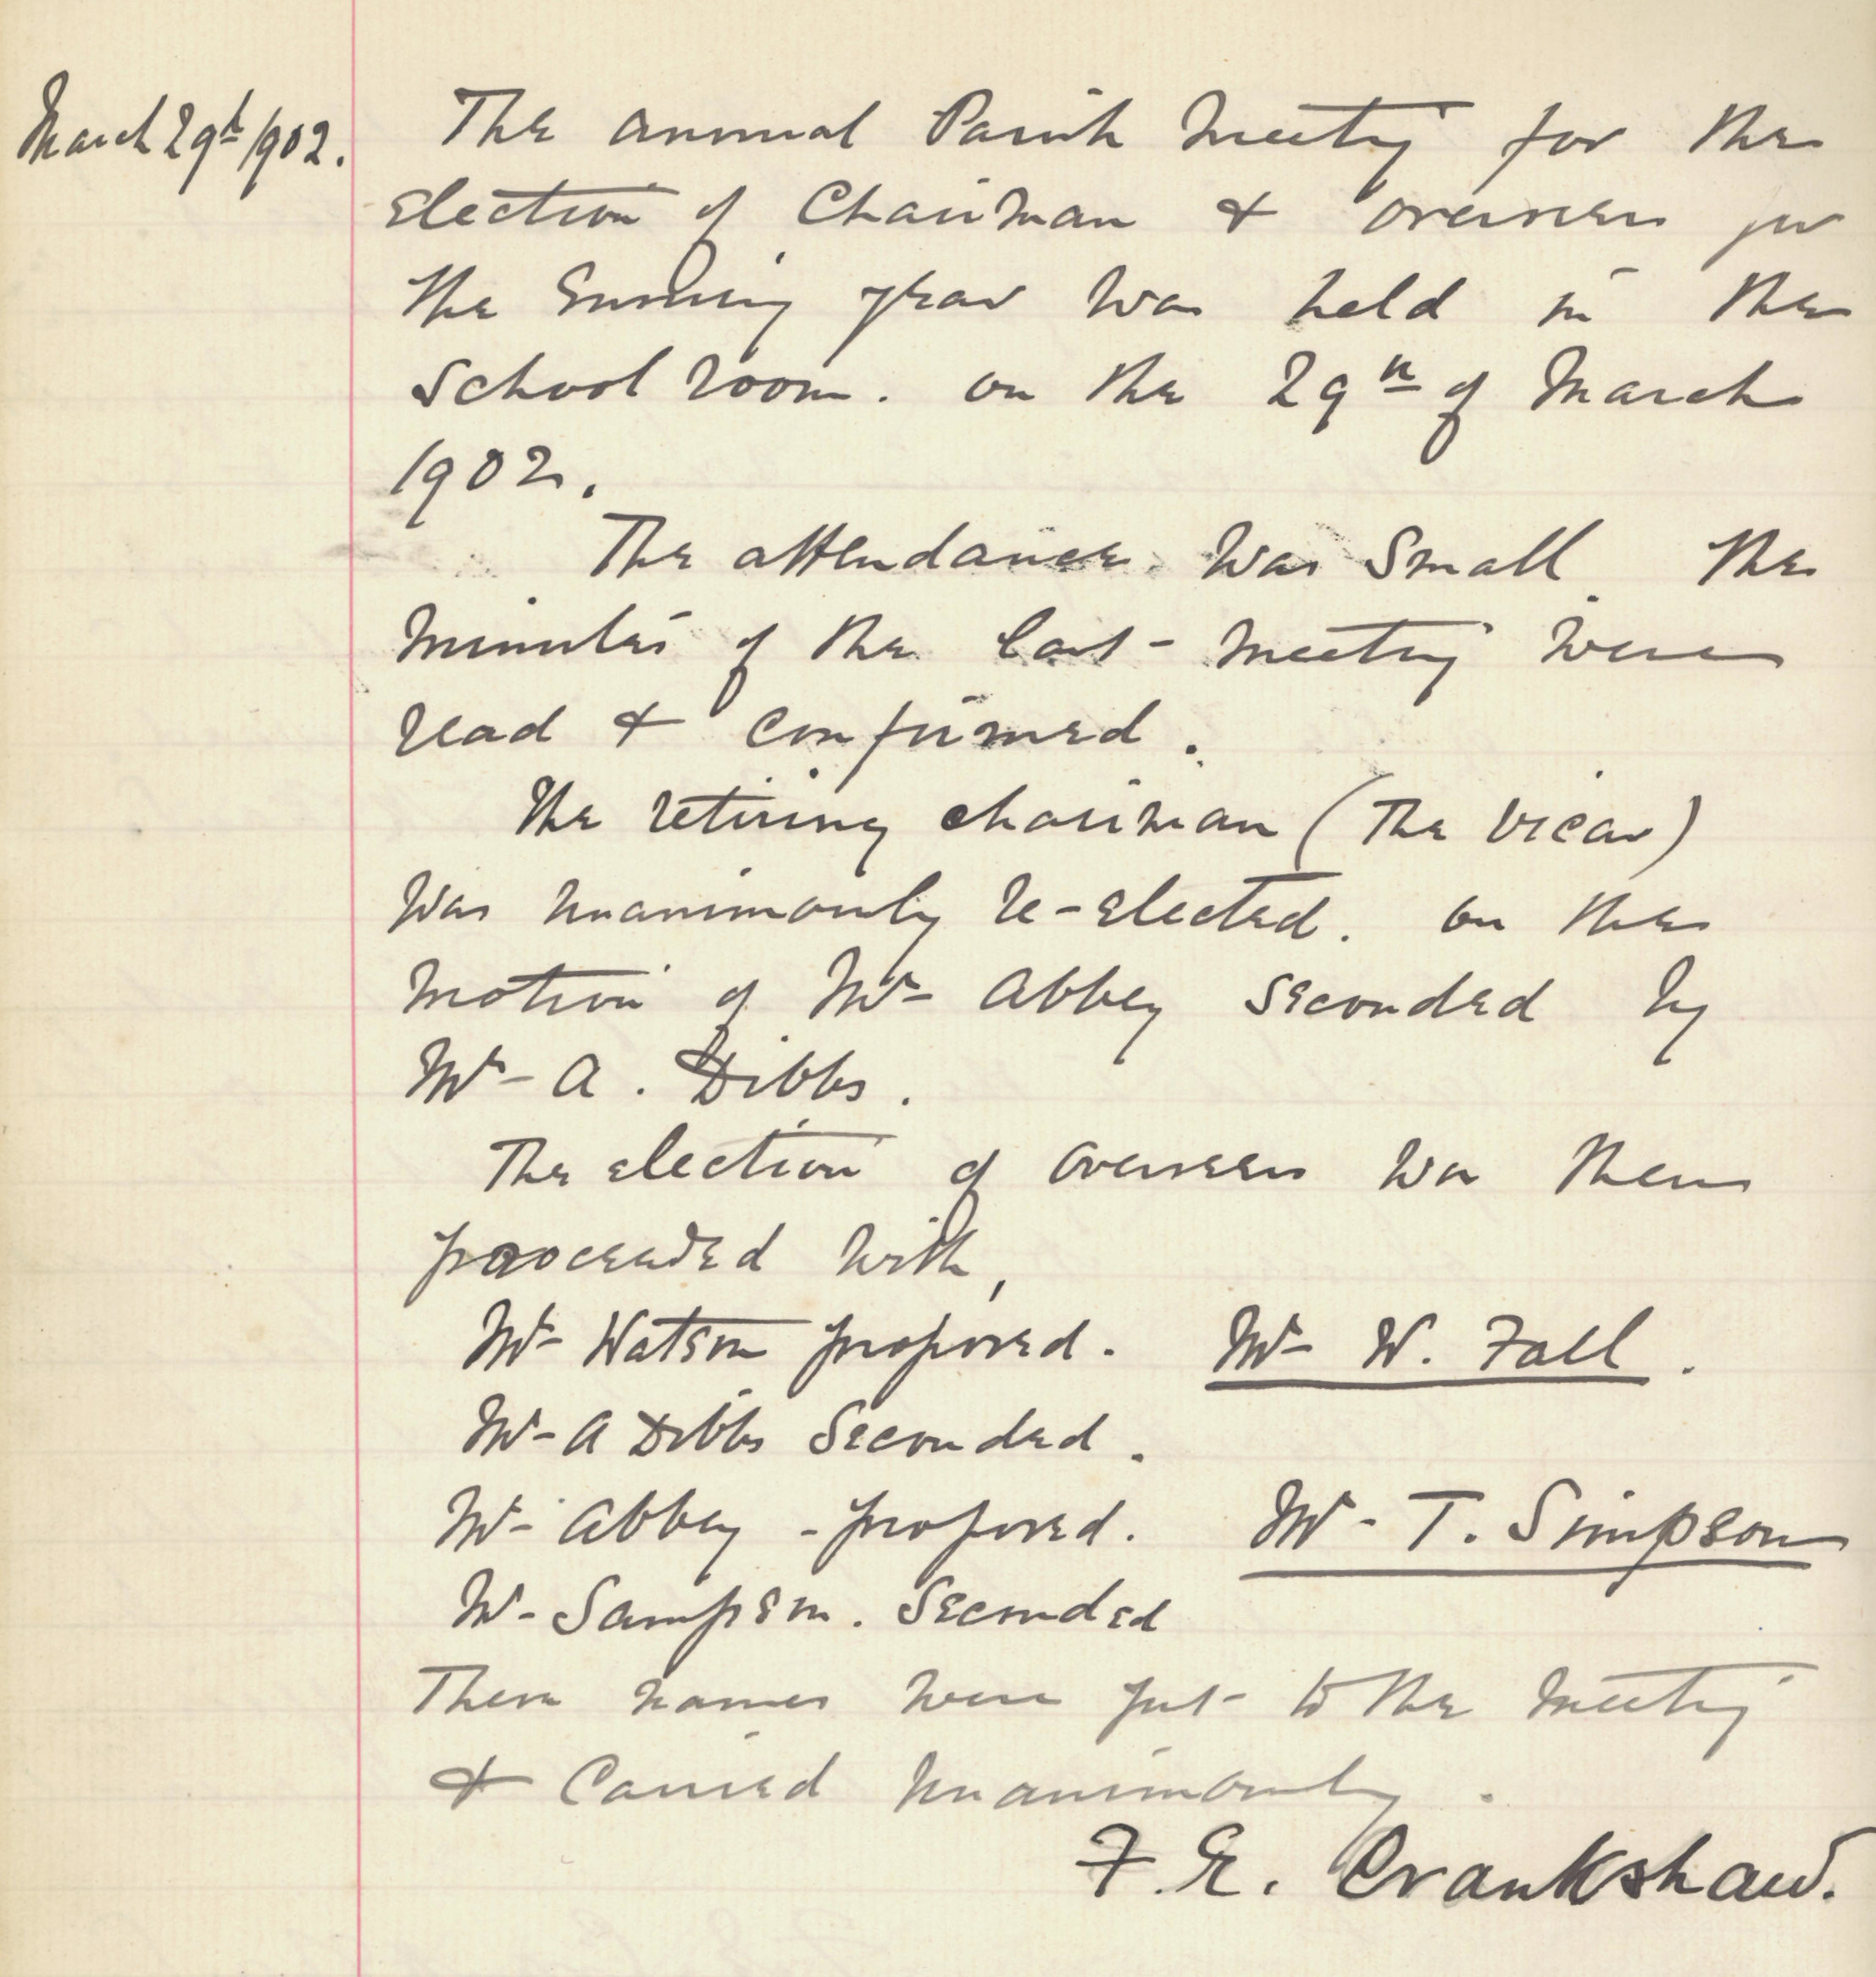 March 29th 1902.
The annual Parish Meeting for the
election of Chairman & overseers for
the Ensuing year was held in the
School room. on the 29th of March
1902.
The attendance was Small. The
Minutes of the last meeting were
read & confirmed.
The retiring chairman (The Vicar)
was unanimously re-elected. on the
motion of Mr Abbey seconded by
Mr A. Dibbs.
The election of overseers was then
proceeded with,
Mr Watson proposed. Mr W. Fall.
Mr A Dibbs Seconded.
Mr Abbey - proposed. Mr T. Simpson
Mr Sampson. Seconded
These names were put to the meeting
& Carried unanimously.
F. E. Crankshaw.